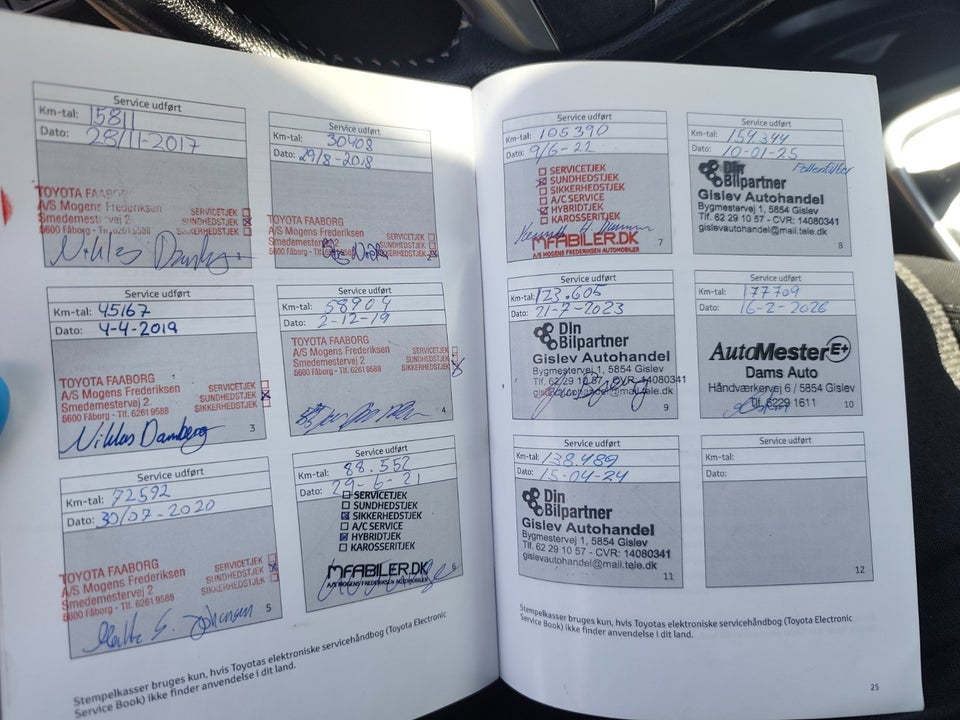 Service udført
Km-tal: 15811
Dato: 28/11-2017
TOYOTA FAABORG
A/S Mogens Frederiksen
Smedemestervej 2
5600 Fåborg - Tlf. 6261 9588
SERVICETJEK
SUNDHEDSTJEK
SIKKERHEDSTJEK
Niklas Damberg
1
Service udført
Km-tal: 30408
Dato: 29/8-2018
TOYOTA FAABORG
A/S Mogens Frederiksen
Smedemestervej 2
5600 Fåborg
SERVICETJEK
SUNDHEDSTJEK
SIKKERHEDSTJEK
2
Service udført
Km-tal: 45167
Dato: 4-4-2019
TOYOTA FAABORG
A/S Mogens Frederiksen
Smedemestervej 2
5600 Fåborg - Tlf. 6261 9588
SERVICETJEK
SUNDHEDSTJEK
SIKKERHEDSTJEK
Niklas Damberg
3
Service udført
Km-tal: 58904
Dato: 2-12-19
TOYOTA FAABORG
A/S Mogens Frederiksen
Smedemestervej 2
5600 Fåborg - Tlf. 6261 9588
SERVICETJEK
SUNDHEDSTJEK
SIKKERHEDSTJEK
4
Service udført
Km-tal: 72592
Dato: 30/07-2020
TOYOTA FAABORG
A/S Mogens Frederiksen
Smedemestervej 2
5600 Fåborg - Tlf. 6261 9588
SERVICETJEK
SUNDHEDSTJEK
SIKKERHEDSTJEK
5
Service udført
Km-tal: 88.552
Dato: 29-6-21
SERVICETJEK
SUNDHEDSTJEK
SIKKERHEDSTJEK
A/C SERVICE
HYBRIDTJEK
KAROSSERITJEK
MFABILER.DK
A/S MOGENS FREDERIKSEN AUTOMOBILER
6
Stempelkasser bruges kun, hvis Toyotas elektroniske servicehåndbog (Toyota Electronic
Service Book) ikke finder anvendelse i dit land.
Service udført
Km-tal: 105390
Dato: 9/6-22
SERVICETJEK
SUNDHEDSTJEK
SIKKERHEDSTJEK
A/C SERVICE
HYBRIDTJEK
KAROSSERITJEK
MFABILER.DK
A/S MOGENS FREDERIKSEN AUTOMOBILER
7
Service udført
Km-tal: 154344
Dato: 10-01-25
Pollenfilter
Din
Bilpartner
Gislev Autohandel
Bygmestervej 1, 5854 Gislev
Tlf. 62 29 10 57 - CVR: 14080341
gislevautohandel@mail.tele.dk
8
Service udført
Km-tal: 123.605
Dato: 21-7-2023
Din
Bilpartner
Gislev Autohandel
Bygmestervej 1, 5854 Gislev
Tlf. 62 29 10 57 - CVR: 14080341
gislevautohandel@mail.tele.dk
9
Service udført
Km-tal: 177709
Dato: 16-2-2026
AutoMester E+
Dams Auto
Håndværkervej 6 / 5854 Gislev
Tlf. 6229 1611
10
Service udført
Km-tal: 138.489
Dato: 15-04-24
Din
Bilpartner
Gislev Autohandel
Bygmestervej 1, 5854 Gislev
Tlf. 62 29 10 57 - CVR: 14080341
gislevautohandel@mail.tele.dk
11
Service udført
Km-tal:
Dato:
12
Stempelkasser bruges kun, hvis Toyotas elektroniske servicehåndbog (Toyota Electronic
Service Book) ikke finder anvendelse i dit land.
25